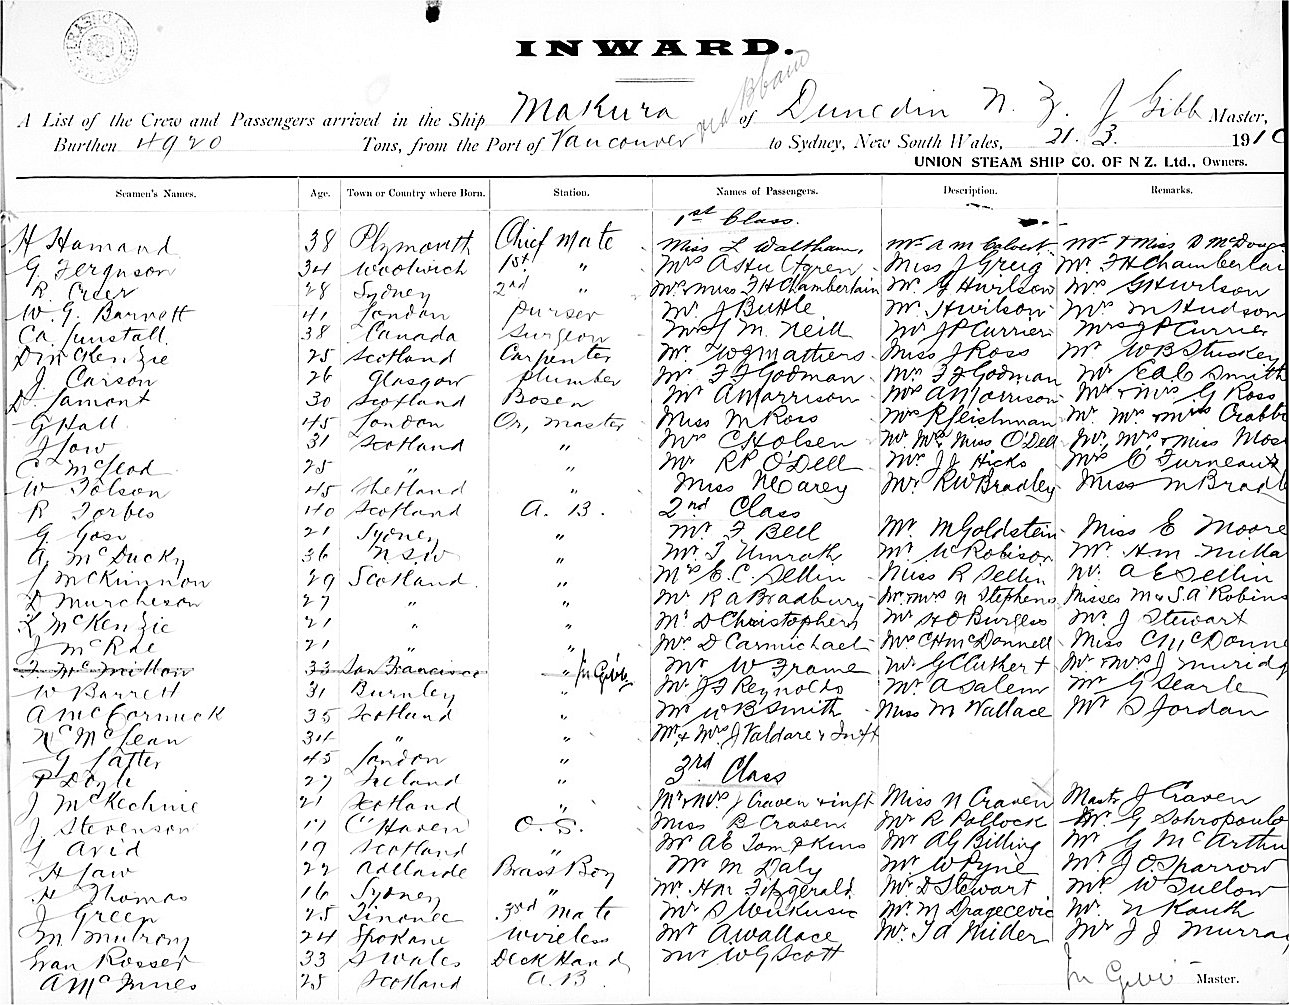 INWARD.
A List of the Crew and Passengers arrived in the Ship Makura of Dunedin N. Z. J Gibb Master,
Burthen 4920 Tons, from the Port of Vancouver to Sydney, New South Wales, 21. 3. 191
UNION STEAM SHIP CO. OF N Z. Ltd., Owners.
Seamen's Names. Age. Town or Country where Born. Station. Names of Passengers. Description. Remarks.
1st Class.
H Hamand 38 Plymouth Chief Mate Miss L Waltham, Mr A M Calvert Mr & Miss D McDou
G Ferguson 34 Woolwich 1st " Mrs Miss J Greig Mr F H Chamberlai
R. Creer 28 Sydney 2nd " Mrs & Miss F H Chamberlain Mr G H Wilson Mrs G H Wilson
W. G. Barrett 41 London Purser Mr J Buttle Mr Wilson Mrs M Hudson
38 Canada Surgeon M. Neill Mr J P Currier Mrs J P Currier
D McKenzie 25 Scotland Carpenter Mr W J Mathers Miss J Ross Mr W B Stuskey
J. Carson 26 Glasgow Plumber Mr F F Godman Mrs F F Godman Mr Smith
D Lamont 30 Scotland Bosen Mr A Morrison Mrs A Morrison Mr & Mrs G Ross
G Hall 45 London Qr, master Miss M Ross Mrs R Fleishman Mr Mrs & Mrs Crabb
J Low 31 Scotland " Mrs C Holsen Mr Mrs Miss O'Dell Mr, Mrs & Miss Mos
C McLeod 25 " " Mr R P O'Dell Mr J J Hicks Mrs C Furneaux
W Tolson 45 Shetland " Miss N Carey Mr R W Bradley Miss M Bradl
R Forbes 40 Scotland A. B. 2nd Class
G Goss 21 Sydney " Mr F Bell Mr M Goldstein Miss E Moore
A McDucky 36 N.S.W " Mr T Umrath Mr W Robison Mr H M Milla
J McKinnon 29 Scotland " Mrs E. C. Sellin Miss R Sellin Mr A E Sellin
D Murcheson 27 " " Mr R A Bradbury Mr & Mrs N Stephens Misses M & S A Robins
McKenzie 21 " " Mr D Christophers Mr H O Burgess Mr J Stewart
J McRae 21 " " Mrs D Carmichael Mrs C H McDonnell Miss C McDonne
McMillan 33 San Francisco " Mr W Frame Mr G C Cuthert Mr & Mrs J Murid
W Barrett 31 Burnley " Mr J F Reynolds Mr A Salem Mr G Searle
A McCormick 35 Scotland " Mr W B Smith Miss M Wallace Mr S Jordan
N McLean 34 " " Mr & Mrs J Valdare & Inft
G Latter 45 London " 3rd Class
P Doyle 27 Ireland "
J McKechnie 21 Scotland " Mr & Mrs J Craven & inft Miss N Craven Mastr J Craven
J Stevenson 17 C'Haven O. S. Miss B Craven Mr R Pollock Mr G Sohropoulo
J Avid 19 Scotland " Mr A E Tompkins Mr A G Billing Mr G McArthu
H Law 22 Adelaide Brass Boy Mr M Daly Mr W Pyne Mr J O Sparrow
H Thomas 16 Sydney " Mr H M Fitzgerald Mr D Stewart Mr W Tullow
J Green 25 3rd Mate Mr S Mr M Dragecevic Mr N Kauth
M Mulrony 24 Spokane Wireless Mr A Wallace Mr J A Milder Mr J J Murray
Evan Rosser 33 S Wales Deck Hand Mr W G Scott
A McInnes 25 Scotland A. B.
Jn Gibb Master.